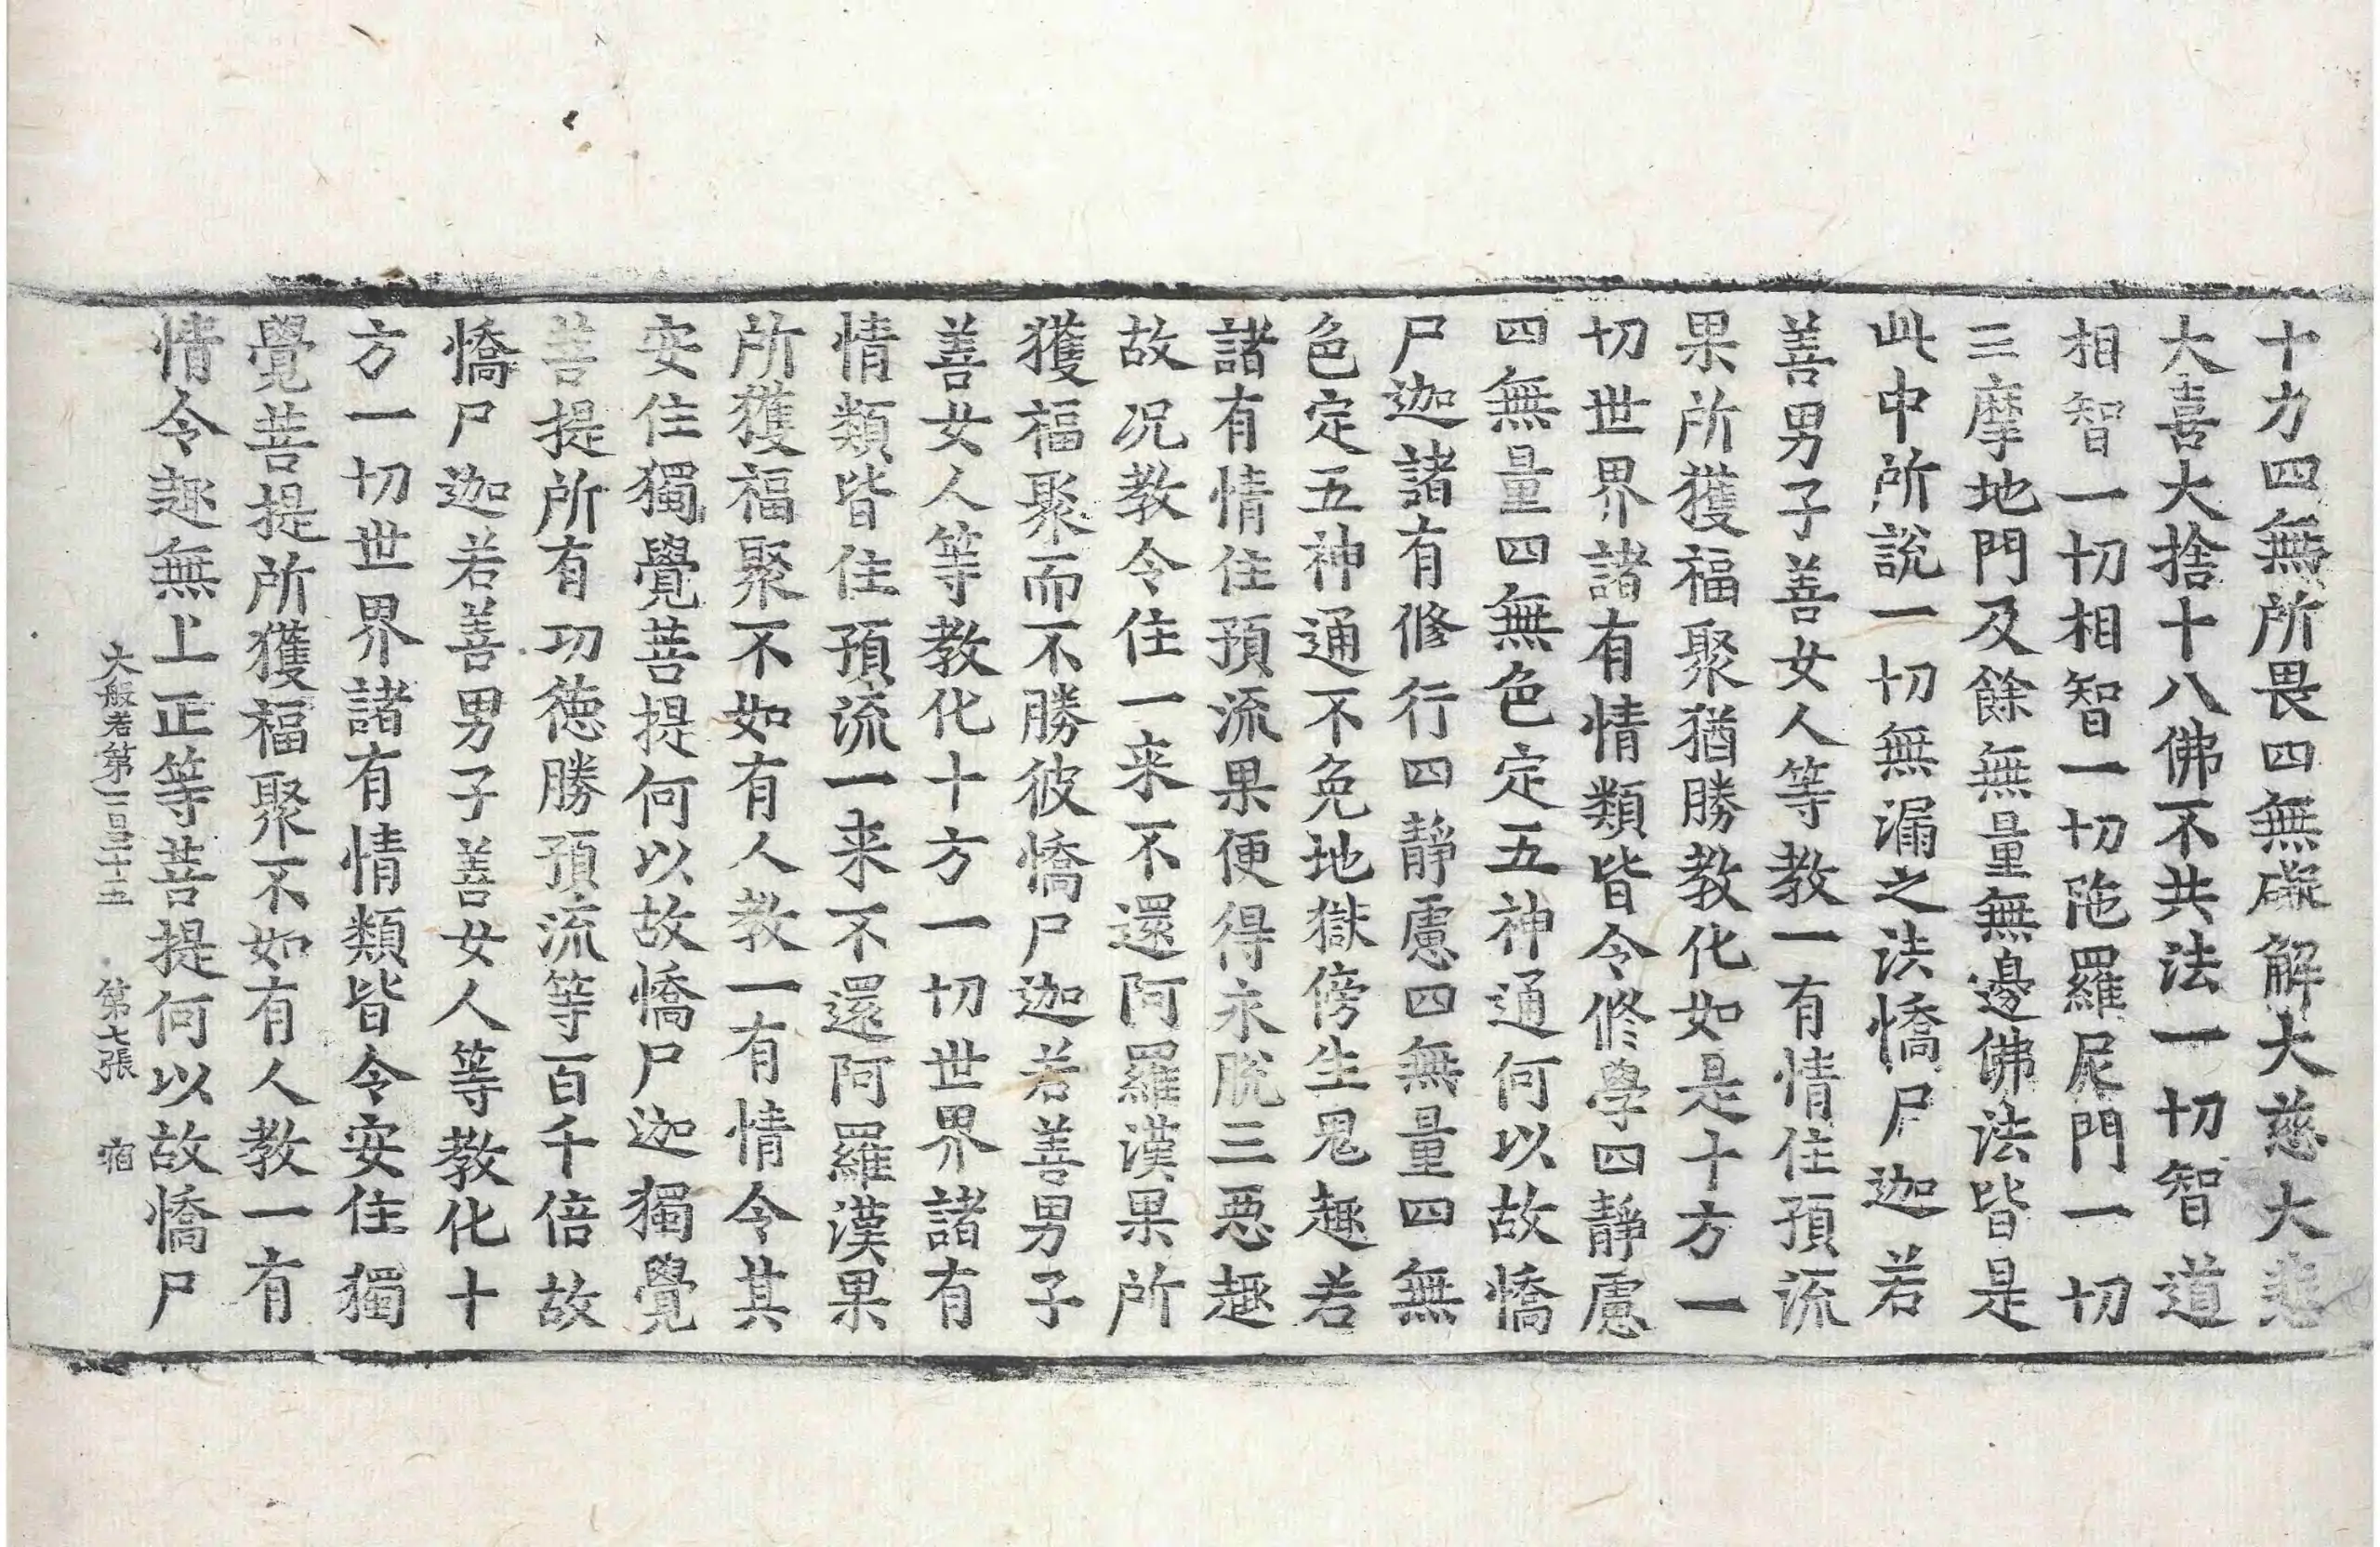 十力四無所畏四無礙解大慈大悲
大喜大捨十八佛不共法一切智道
相智一切相智一切陁羅尼門一切
三摩地門及餘無量無邊佛法皆是
此中所說一切無漏之法憍尸迦若
善男子善女人等教一有情住預流
果所獲福聚猶勝教化如是十方一
切世界諸有情類皆令修學四靜慮
四無量四無色定五神通何以故憍
尸迦諸有修行四靜慮四無量四無
色定五神通不免地獄傍生鬼趣若
諸有情住預流果便得永脫三惡趣
故况教令住一来不還阿羅漢果所
獲福聚而不勝彼憍尸迦若善男子
善女人等教化十方一切世界諸有
情類皆住預流一来不還阿羅漢果
所獲福聚不如有人教一有情令其
安住獨覺菩提何以故憍尸迦獨覺
菩提所有功徳勝預流等百千倍故
憍尸迦若善男子善女人等教化十
方一切世界諸有情類皆令安住獨
覺菩提所獲福聚不如有人教一有
情令趣無上正等菩提何以故憍尸
大般若第一百三十五 第七張 宿